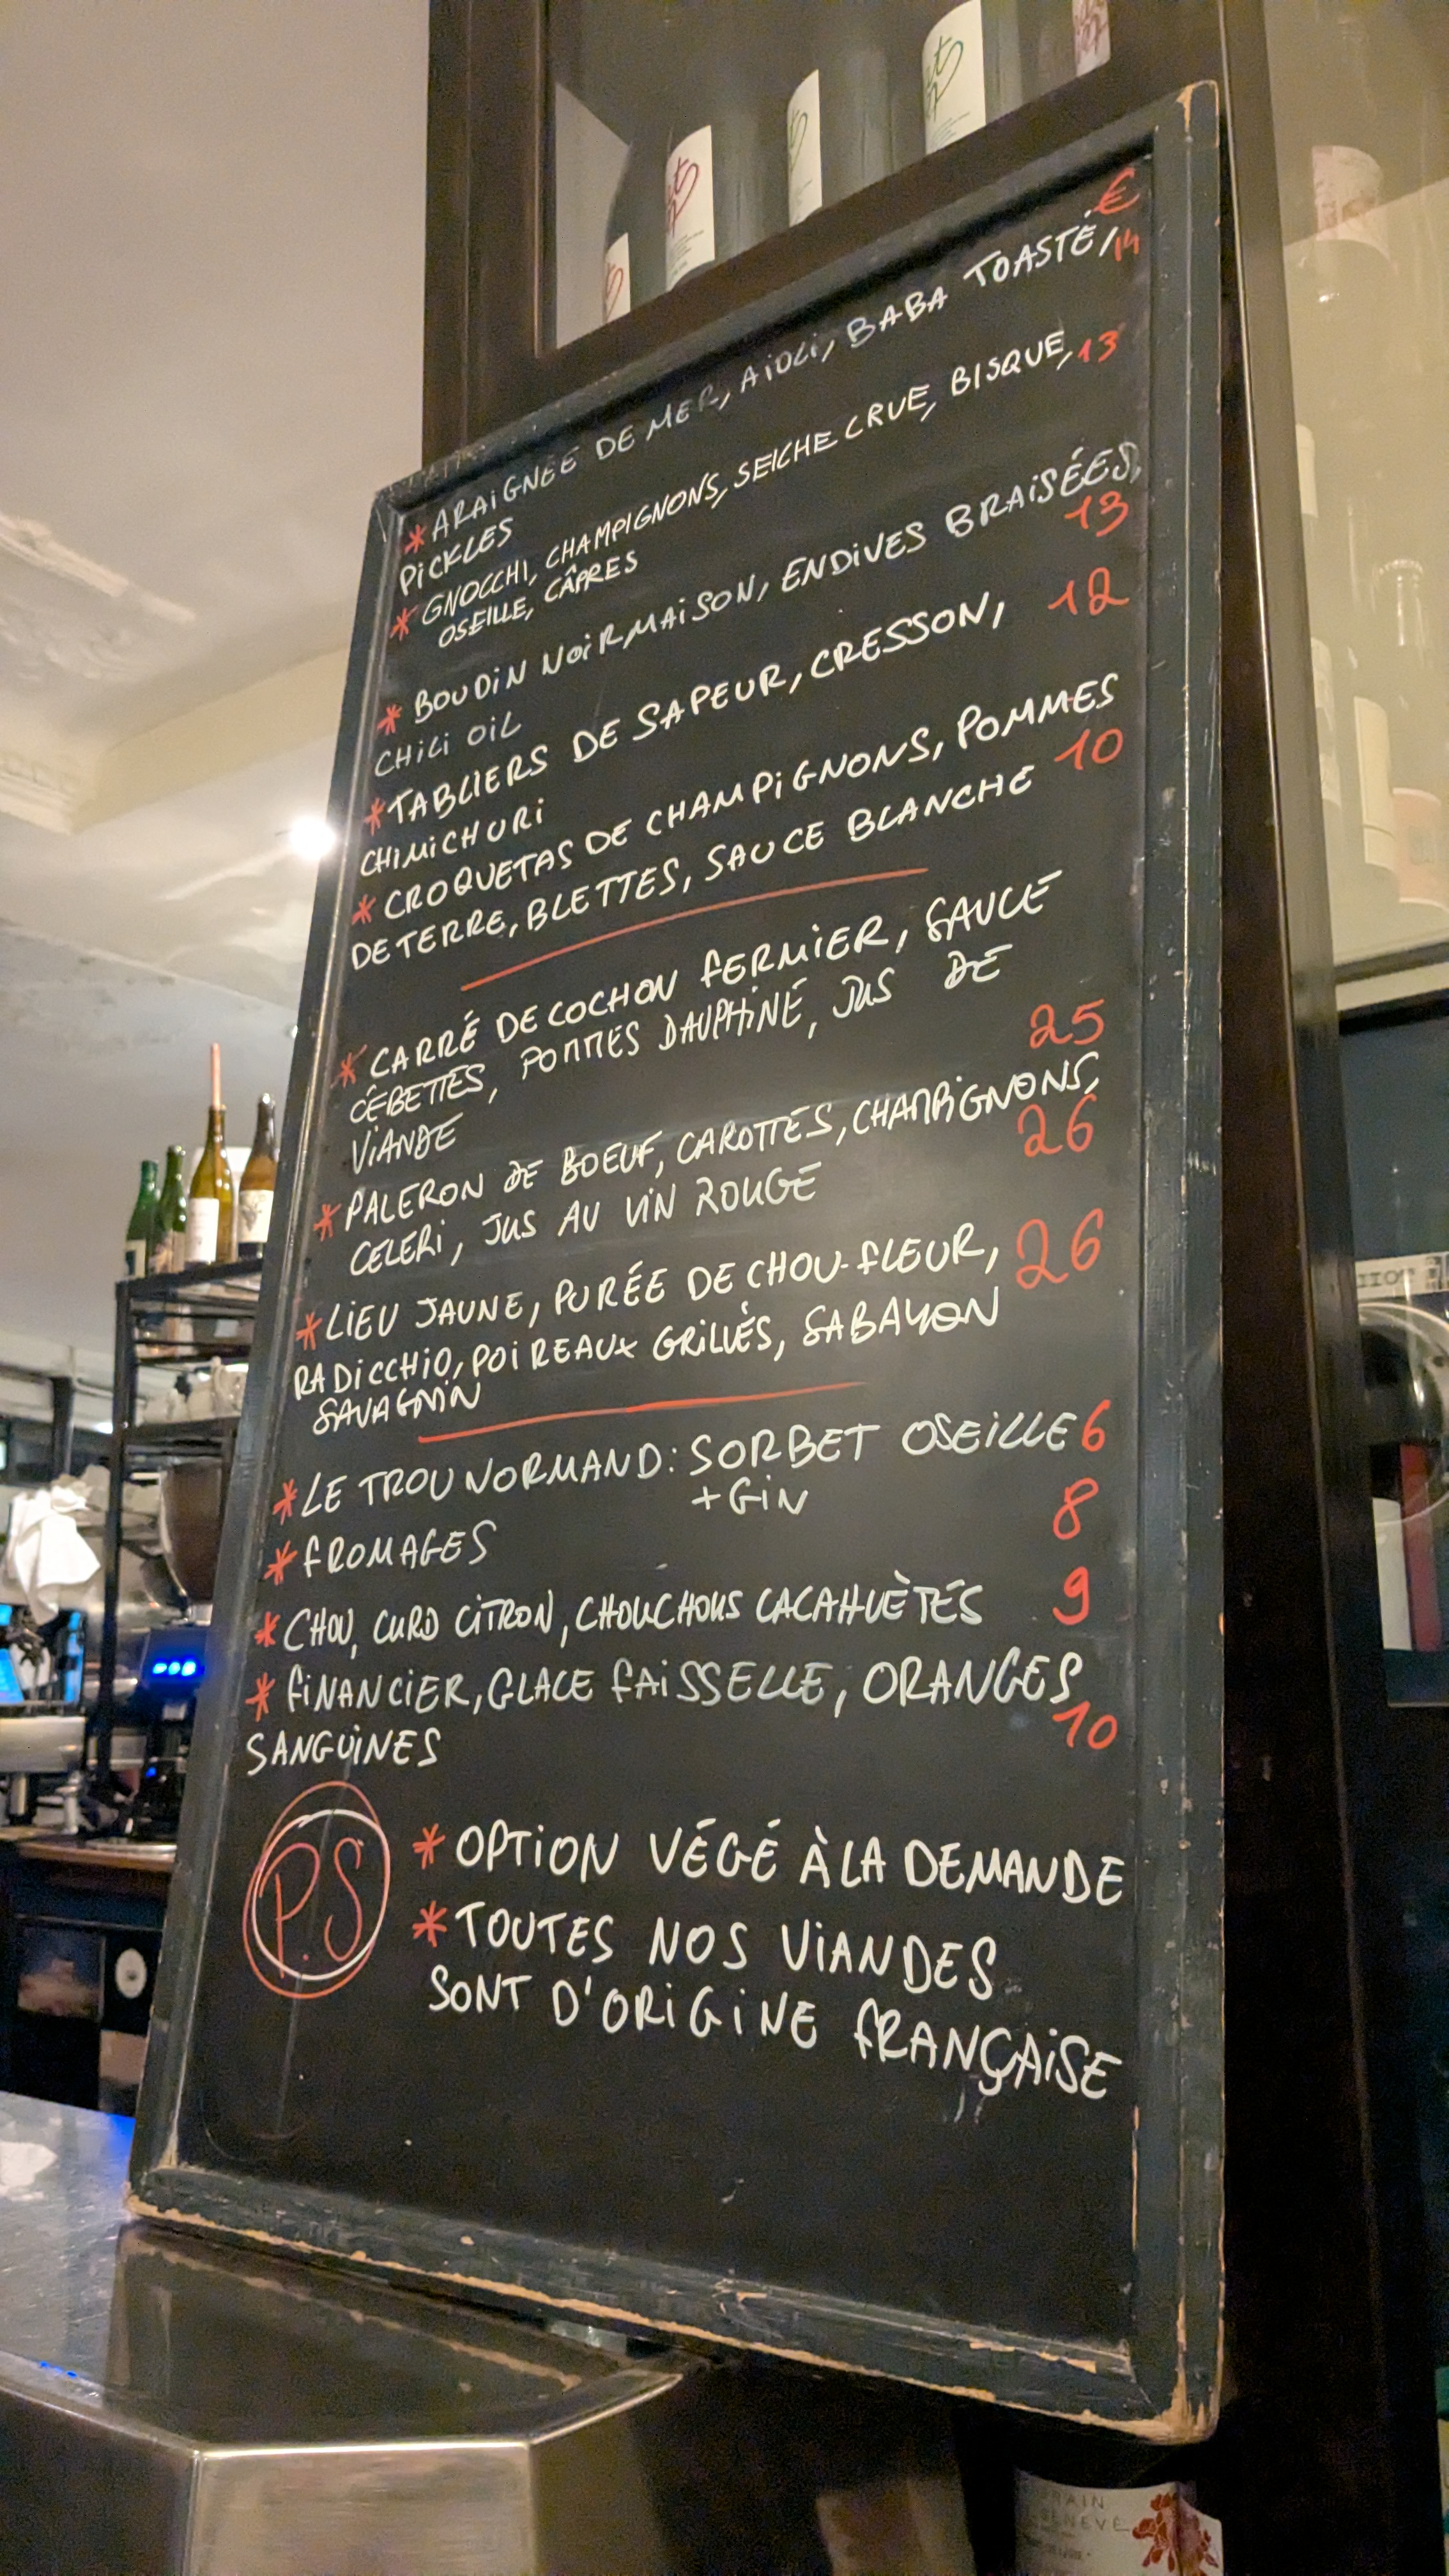 €
* ARAIGNÉE DE MER, AÏOLI, BABA TOASTÉ, 14
PICKLES
* GNOCCHI, CHAMPIGNONS, SEICHE CRUE, BISQUE, 13
OSEILLE, CÂPRES
* BOUDIN NOIR MAISON, ENDIVES BRAISÉES,
CHILI OIL 13
* TABLIERS DE SAPEUR, CRESSON, 12
CHIMICHURI
* CROQUETAS DE CHAMPIGNONS, POMMES
DE TERRE, BLETTES, SAUCE BLANCHE 10
* CARRÉ DE COCHON FERMIER, SAUCE
CÉBETTES, POMMES DAUPHINE, JUS DE
VIANDE 25
* PALERON DE BOEUF, CAROTTES, CHAMPIGNONS,
CELERI, JUS AU VIN ROUGE 26
* LIEU JAUNE, PURÉE DE CHOU-FLEUR, 26
RADICCHIO, POIREAUX GRILLÉS, SABAYON
SAVAGNIN
* LE TROU NORMAND: SORBET OSEILLE 6
+ GIN
* FROMAGES 8
* CHOU, CURD CITRON, CHOUCHOUS CACAHUÈTES 9
* FINANCIER, GLACE FAISSELLE, ORANGES
SANGUINES 10
P.S
* OPTION VÉGÉ À LA DEMANDE
* TOUTES NOS VIANDES
SONT D'ORIGINE FRANÇAISE